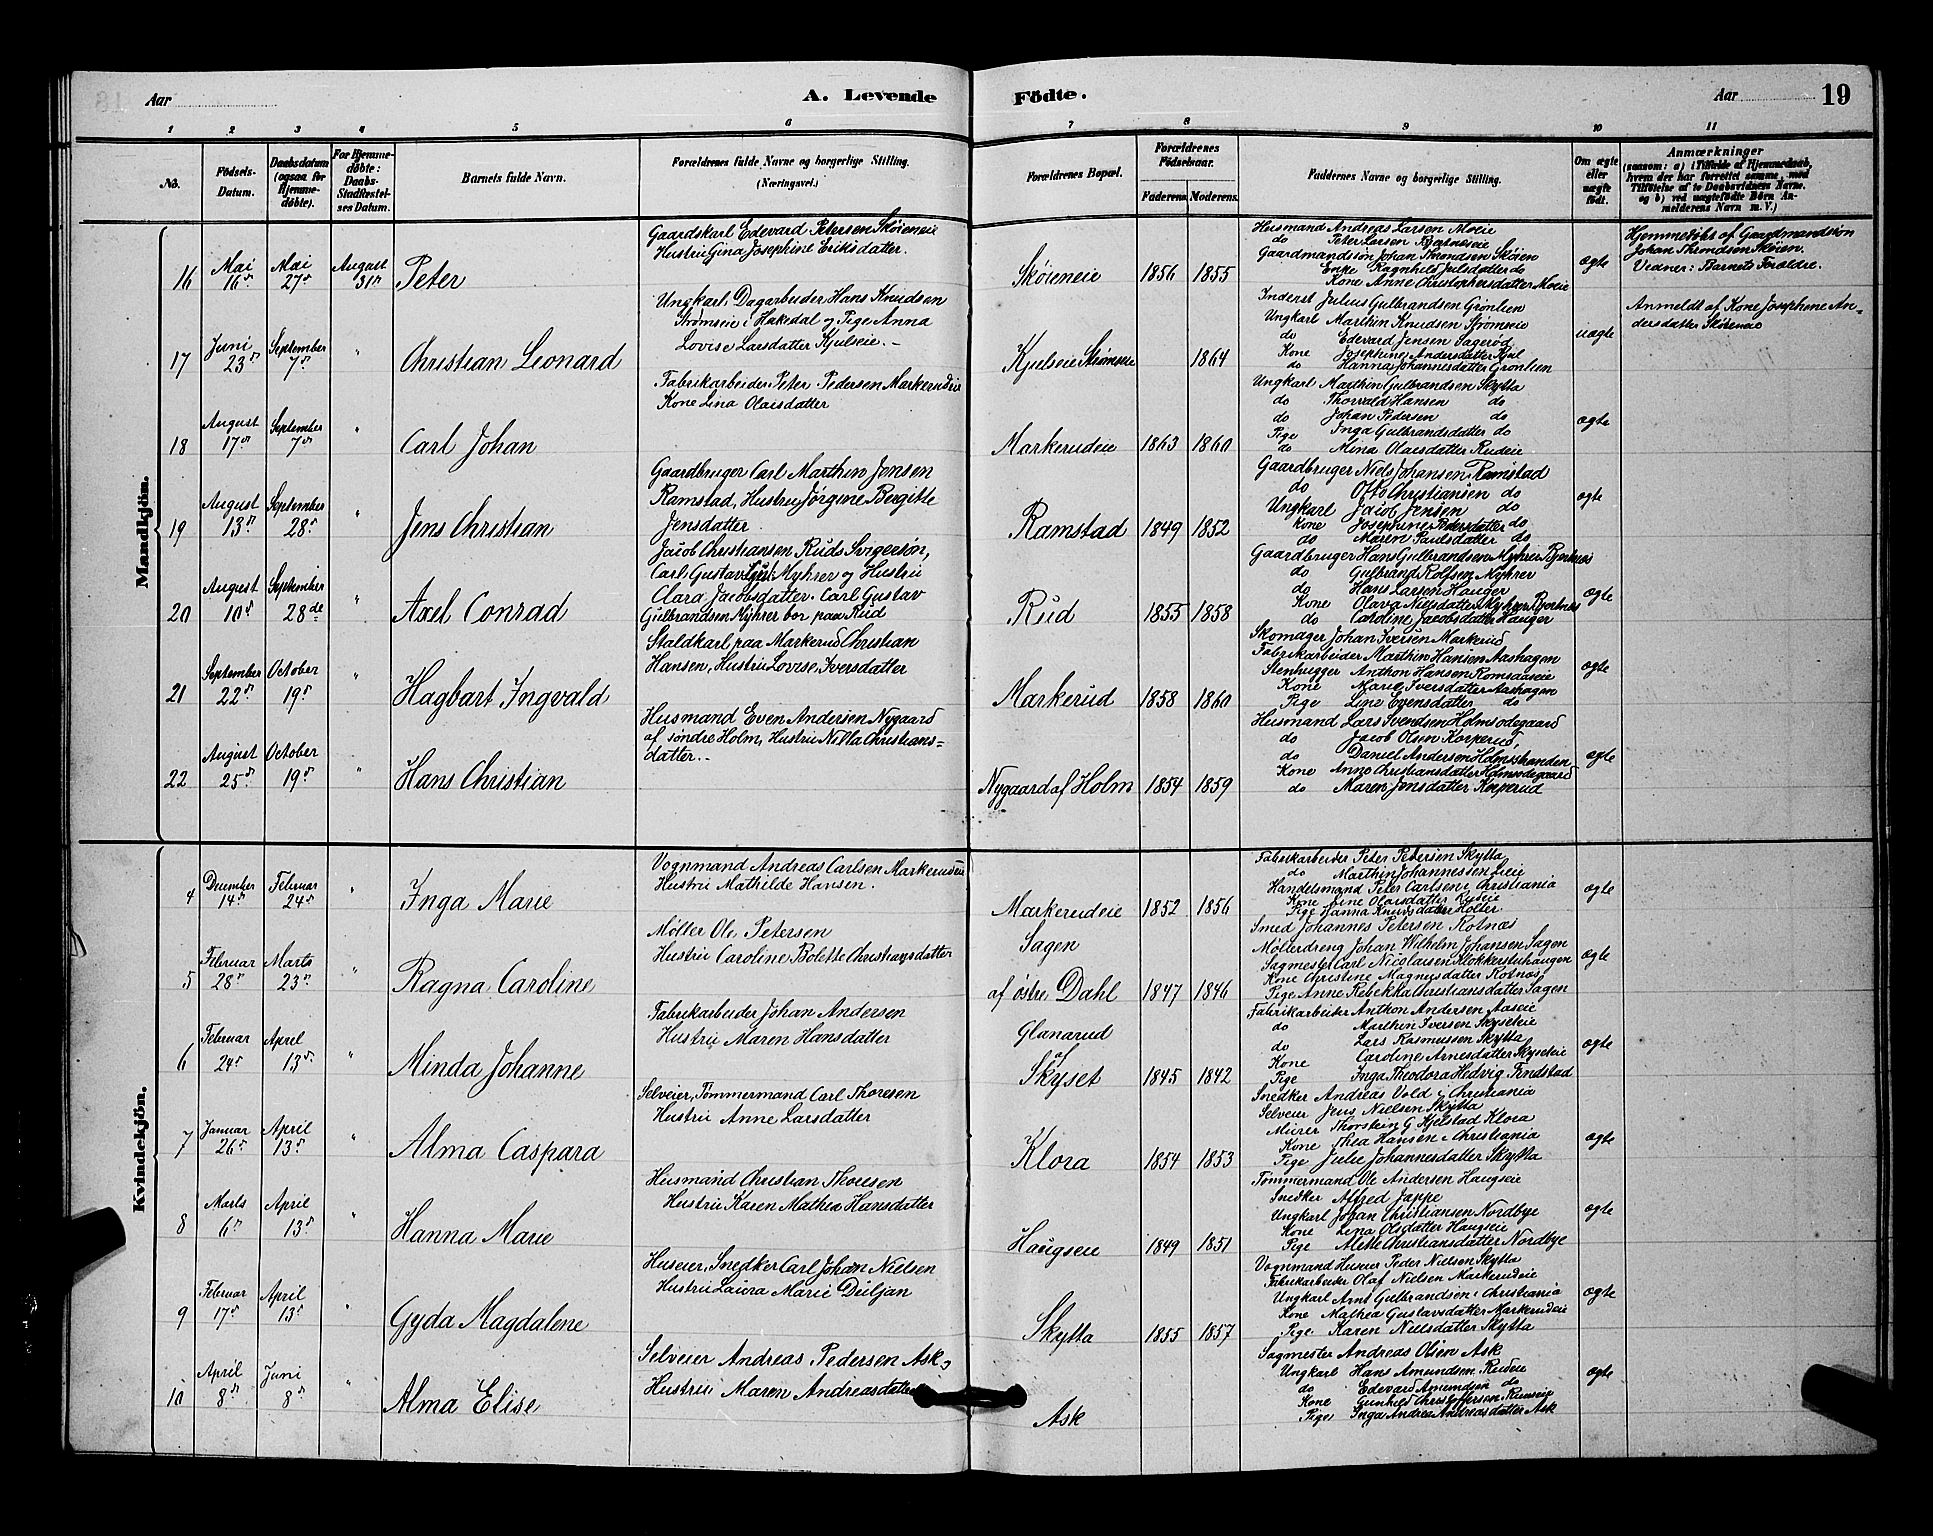 Aar
A. Levende
Fødte.
Aar
19
1 2 3 4 5 6 7 8 9 10 11
No.
Fødsels-Datum.
Daabsdatum (ogsaa for Hjemme-døbte).
For Hjemme-døbte: Daabs-Stadfæstel-ses Datum.
Barnets fulde Navn.
Forældrenes fulde Navne og borgerlige Stilling. (Næringsvei.)
Forældrenes Bopæl.
Forældrenes Fødselsaar.
Faderens. Moderens.
Faddernes Navne og borgerlige Stilling.
Om ægte eller uægte født.
Anmærkninger
(saasom: a) i Tilfælde af Hjemmedaab,
hvem der har forrettet samme, med
Tilføielse af to Daabsvidners Navne.
og b) ved uægtefødte Børn An-
melderens Navn m. V.)
Mandkjøn.
16
Mai 16de
Mai 27de
August 31te
Peter
Gaardskarl Edevard Petersen Skøieneie
Hustru Gina Josephine Eriksdatter.
Skøieneie
1856 1855
Husmand Andreas Larsen Moeie
do Peter Larsen
Gaardmandssøn Johan Skoien
Enke Ragnhild Julsdatter do
Kone Anne Christophersdatter Moeie
ægte
Hjemmedøbt af Gaardmandssøn
Johan Skøien.
Vidner: Barnets Forældre.
17
Juni 23de
September 7de
"
Christian Leonard
Ungkarl, Dagarbeider Hans Knudsen
Strømseie i Hakedal og Pige Anna
Lovise Larsdatter Kjulseie.-
Kjulseie Strømseie
1864
Inderst Julius Gulbrandsen Grønlien
Ungkarl Marthin Knudsen Strømseie
do Edevard Jensen Sagerød
Kone Josephine Andersdatter Kjul
do Hanna Johannesdatter Grønlien
uægte
Anmeldt af Kone Josephine An-
dersdatter Skøieneie
18
August 17de
September 7de
"
Carl Johan
Fabrikarbeider Peter Pedersen Markerudeie
Kone Lina Olaisdatter
Markerudeie
1863 1860
Ungkarl Marthin Gulbrandsen Skytta
do Thorvald Hansen do
do Johan Pedersen do
Pige Inga Gulbrandsdatter do
do Mina Olaisdatter Rudeie
ægte
19
August 13de
September 28de
"
Jens Christian
Gaardbruger Carl Marthin Jensen
Ramstad, Hustru Jørgine Bergitte
Jensdatter.
Ramstad
1849 1852
Gaardbruger Niels Johansen Ramstad
do Otto Christiansen do
Ungkarl Jacob Jensen do
Kone Josephine Pedersdatter do
do Maren Paulsdatter do
ægte
20
August 10de
September 28de
"
Axel Conrad
Jacob Christiansen Ruds Svigersøn,
Carl Gustav Myhrer og Hustru
Clara Jacobsdatter. Carl Gustav
Gulbrandsen Myhrer bor paa Rud
Rud
1855 1858
Gaardbruger Hans Gulbrandsen Myhrer Bjertnæs
do Gulbrand Rolfsen Myhrer
do Hans Larsen Hauger
Kone Olava Nielsdatter Myhrer Bjertnæs
do Caroline Jacobsdatter Hauger
ægte
21
September 22de
October 19de
"
Hagbart Ingvald
Staldkarl paa Markerud Christian
Hansen, Hustru Lovise Iversdatter
Markerud
1858 1860
Skomager Johan Iversen Markerud
Fabrikarbeider Marthin Hansen Aashagen
Stenhugger Anthon Hansen Romsaaseie
Kone Marie Iversdatter Aashagen
Pige Line Evensdatter do
ægte
22
August 25de
October 19de
"
Hans Christian
Husmand Even Andersen Nygaard
af søndre Holm, Hustru Nilla Christians-
datter.-
Nygaard af Holm
1854 1859
Husmand Lars Svendsen Holmsødegaard
do Jacob Olsen Korperud,
do Daniel Andersen Holmsstranden
Kone Anne Christiansdatter Holmsødegaard
do Maren Jonsdatter Korperud
ægte
Kvindekjøn.
4
December 14de
Februar 24de
"
Inga Marie
Vognmand Andreas Carlsen Markerudeie
Hustru Mathilde Hansen.
Markerudeie
1852 1856
Fabrikarbeider Peter Petersen Skytta
do Marthin Johannessen Lieie
Handelsmand Peter Carlsen i Christiania
Kone Line Olaisdatter Rudeie
Pige Hanna Knudsdatter Holter
ægte
5
Februar 28de
Marts 23de
"
Ragna Caroline
Møller Ole Petersen
Hustru Caroline Bolette Christiansdatter
Sagen
af østre Dahl
1847 1846
Smed Johannes Petersen Rotnæs
Møllerdreng Johan Wilhelm Johansen Sagen
Sagmester Carl Nicolaisen Klokkerstuhaugen
Kone Christine Magnusdatter Rotnæs
Pige Anne Rebekka Christiansdatter Sagen
ægte
6
Februar 24de
April 13de
"
Minda Johanne
Fabrikarbeider Johan Andersen
Hustru Maren Hansdatter
Glanarud
af
Skyset
1845 1842
Fabrikarbeider Anthon Andersen Aaseie
do Marthin Iversen Skyseteie
do Lars Rasmussen Skytta
Kone Caroline Arnesdatter Skyseteie
Pige Inga Theodora Hedvig Findstad
ægte
7
Januar 26de
April 13de
"
Alma Caspara
Selveier, Tømmermand Carl Thoresen
Hustru Anne Larsdatter
Klora
1854 1853
Snedker Andreas Vold i Christiania
Selveier Jens Nielsen Skytta
Murer Thorstein G. Hjelstad Klora
Kone Thea Hansen i Christiania
Pige Julie Johannesdatter Skytta
ægte
8
Marts 6de
April 13de
"
Hanna Marie
Husmand Christian Thoresen
Hustru Karen Mathea Hansdatter
Haugseie
1849 1851
Tømmermand Ole Andersen Haugseie
Snedker Alfred Jappe
Ungkarl Johan Christiansen Nordbye
Kone Lena Olsdatter Haugseie
Pige Mette Christiansdatter Nordbye
ægte
9
Februar 17de
April 13de
"
Gyda Magdalene
Huseier, Snedker Carl Johan Nielsen
Hustru Laura Marie Duljan
Skytta
1855 1857
Vognmand Huseier Peder Nielsen Skytta
Fabrikarbeider Olaf Nielsen Markerudeie
Ungkarl Arnt Gulbrandsen i Christiania
Kone Mathea Gustavsdatter Markerudeie
Pige Karen Nielsdatter Skytta
ægte
10
April 8de
Juni 8de
"
Alma Elise
Selveier Andreas Pedersen Ask,
Hustru Maren Andreasdatter
Ask
Sagmester Andreas Olsen Ask
Ungkarl Hans Amundsen Rudeie
do Edevard Amundsen do
Kone Gunhild Christoffersen
Pige Inga Andrea Andreasdatter Ask
ægte